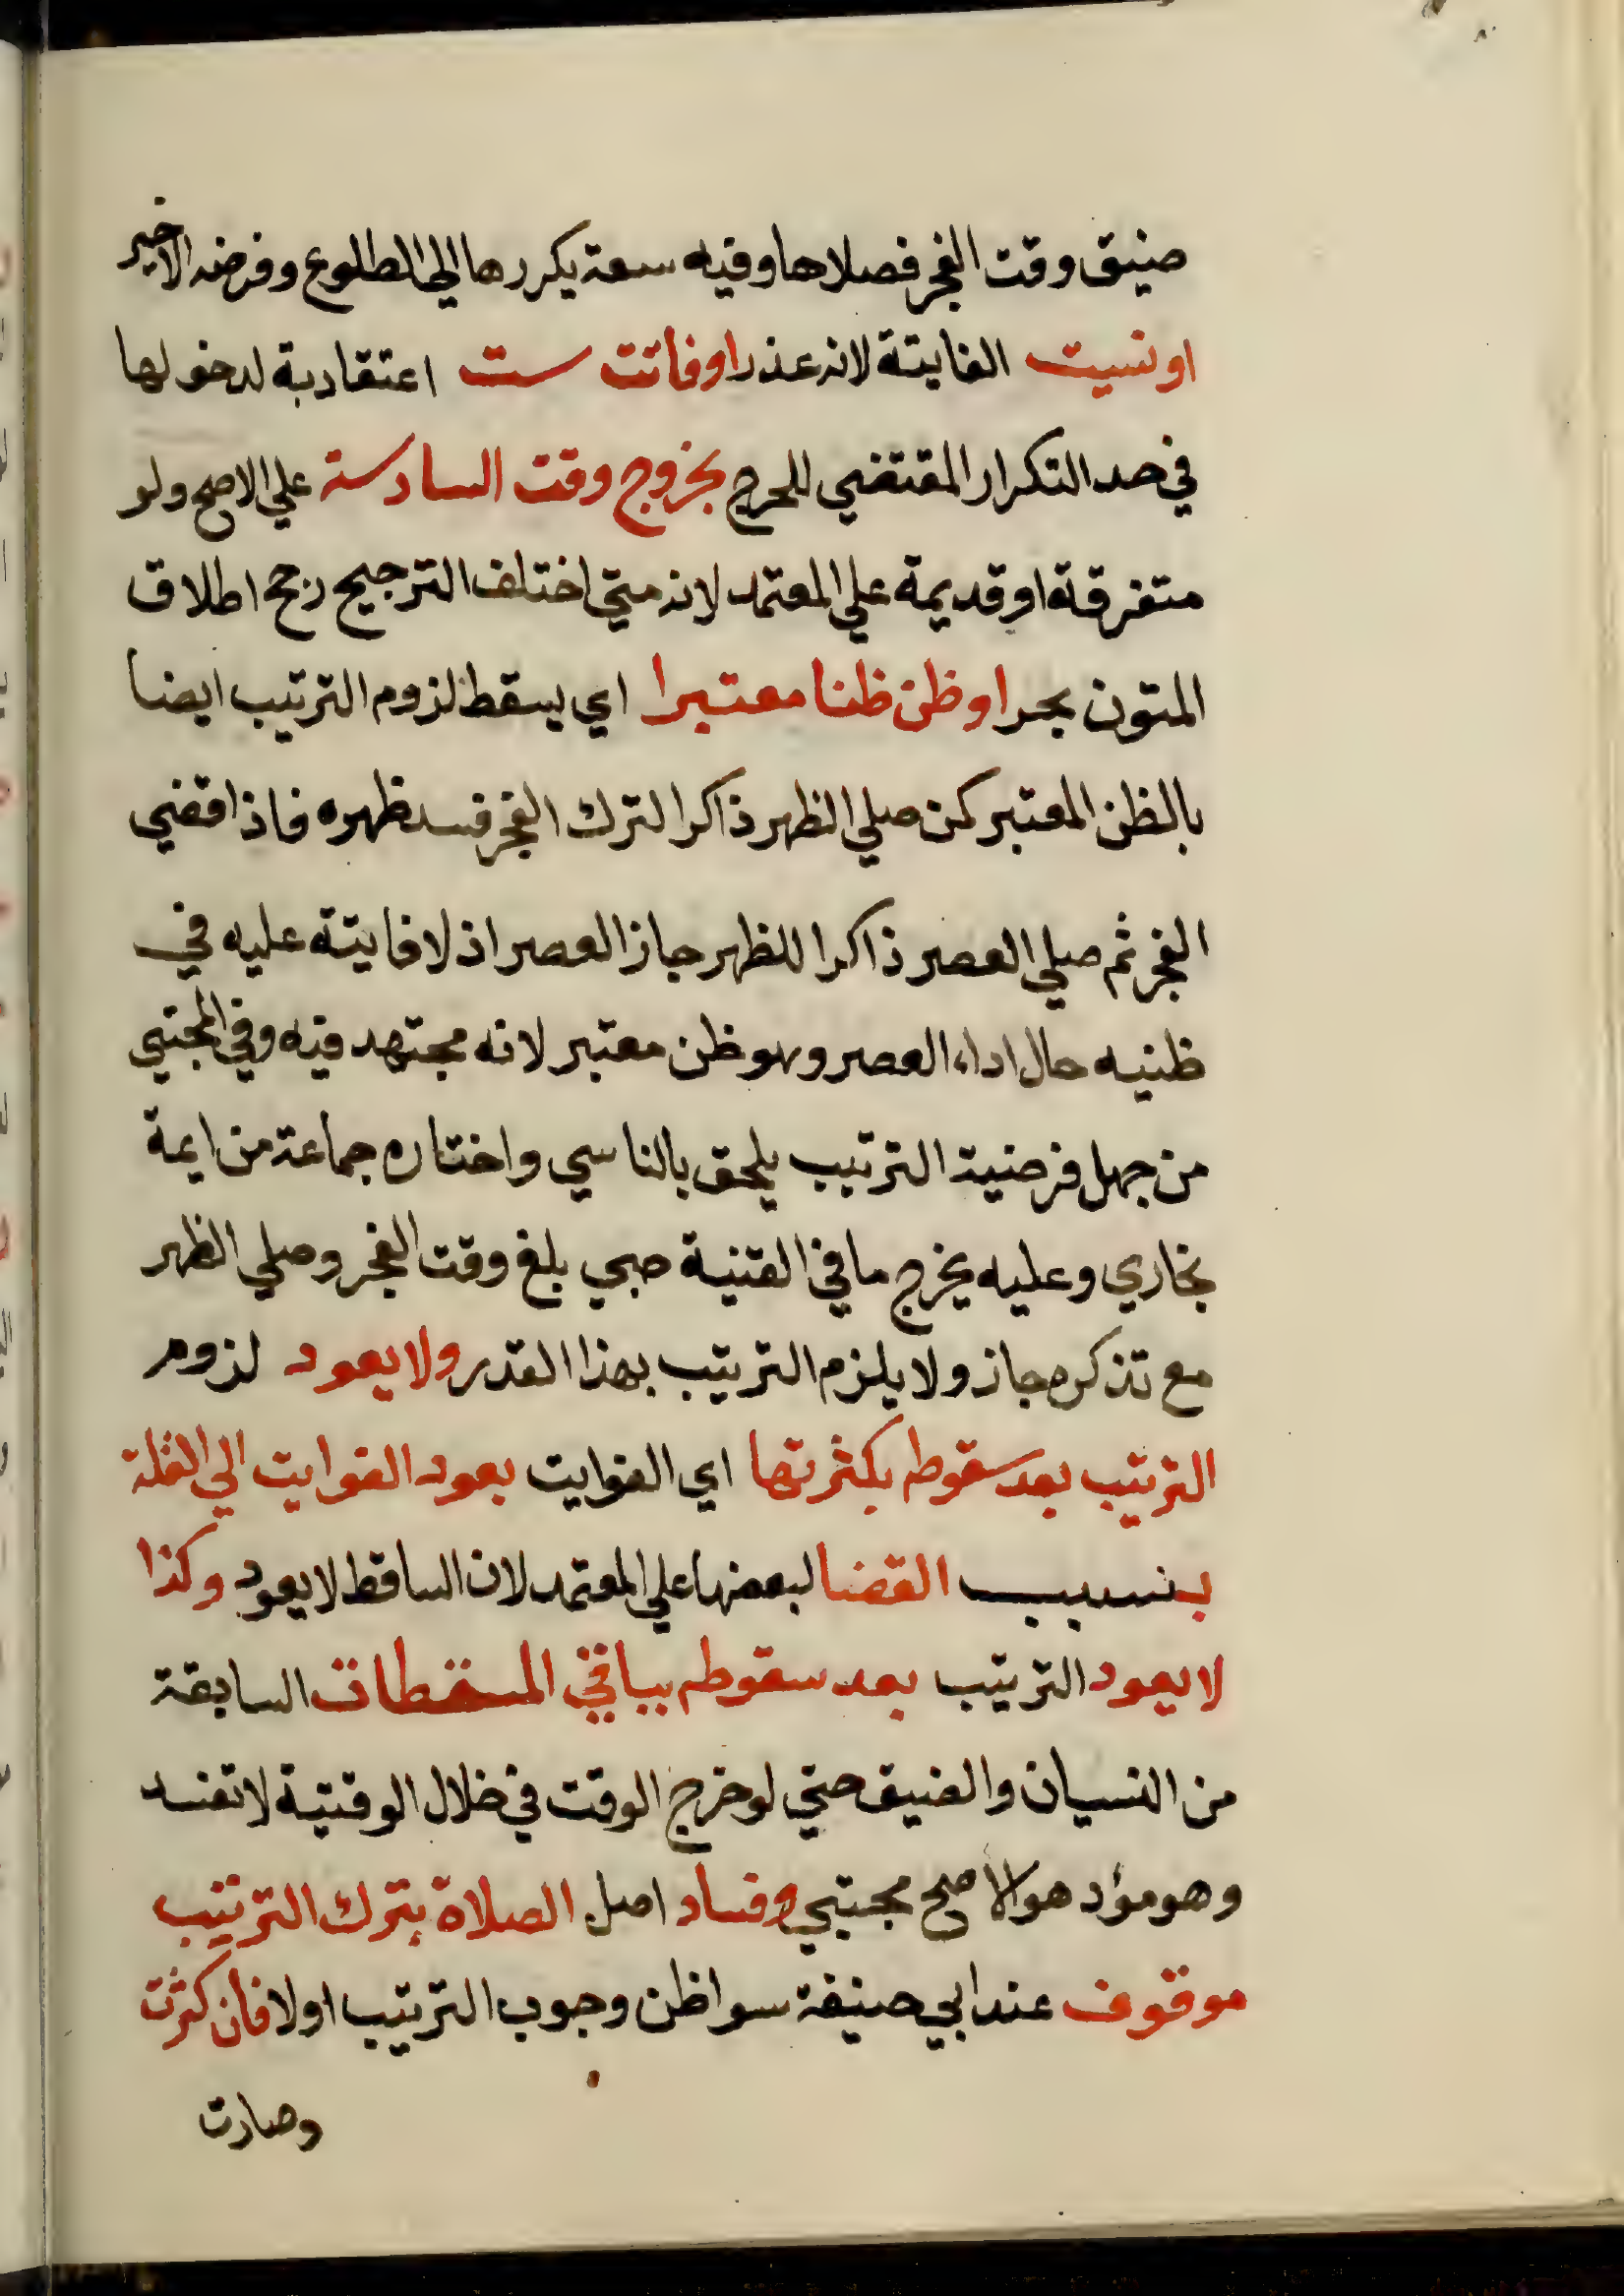 ضيق وقت الفجر فصلاها وفيه سعة يكررها الي الطلوع وفرضه الاخير
او نسيت الفايتة لانه عذر او فاتت ست اعتقادية لدخولها
في حد التكرار المقتضي للحرج بخروج وقت السادسة علي الاصح ولو
متفرقة او قديمة علي المعتمد لانه متي اختلف الترجيح رجح اطلاق
المتون بحر او ظن ظنا معتبرا اي يسقط لزوم الترتيب ايضا
بالظن المعتبر كمن صلي الظهر ذاكرا لترك الفجر فسد ظهره فاذا قضي
الفجر ثم صلي العصر ذاكرا للظهر جاز العصر اذ لا فايتة عليه في
ظنيه حال اداء العصر وهو ظن معتبر لانه مجتهد فيه وفي المجتبي
من جهل فرضية الترتيب يلحق بالناسي واختاره جماعة من ايمة
بخاري وعليه يخرج ما في القنية صبي بلغ وقت الفجر وصلي الظهر
مع تذكره جاز ولا يلزم الترتيب بهذا القدر ولا يعود لزوم
الترتيب بعد سقوطه بكثرتها اي الفوايت بعود الفوايت الي القلة
بنسبب القضا لبعضها علي المعتمد لان الساقط لا يعود وكذا
لا يعود الترتيب بعد سقوطه بباقي المسقطات السابقة
من النسيان والضيق حتي لو خرج الوقت في خلال الوقتية لا تفسد
وهو مؤد هو الاصح مجتبي وفساد اصل الصلاة بترك الترتيب
موقوف عند ابي حنيفة سوا ظن وجوب الترتيب اولا فان كثرت
وصارت